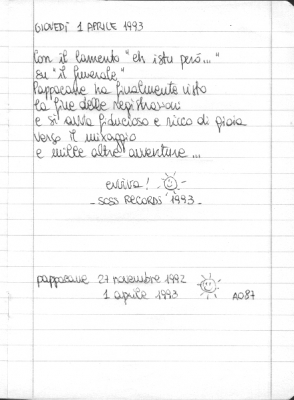 GIOVEDÌ 1 APRILE 1993
Con il lamento "eh istu però..."
su "il funerale"
Pappacane ha finalmente visto
la fine delle registrazioni
e si avvia fiducioso e ricco di gioia
verso il mixaggio
e mille altre avventure...
evviva!
- SOSS RECORDS 1993 -
pappacane 27 novembre 1992
1 aprile 1993
A087